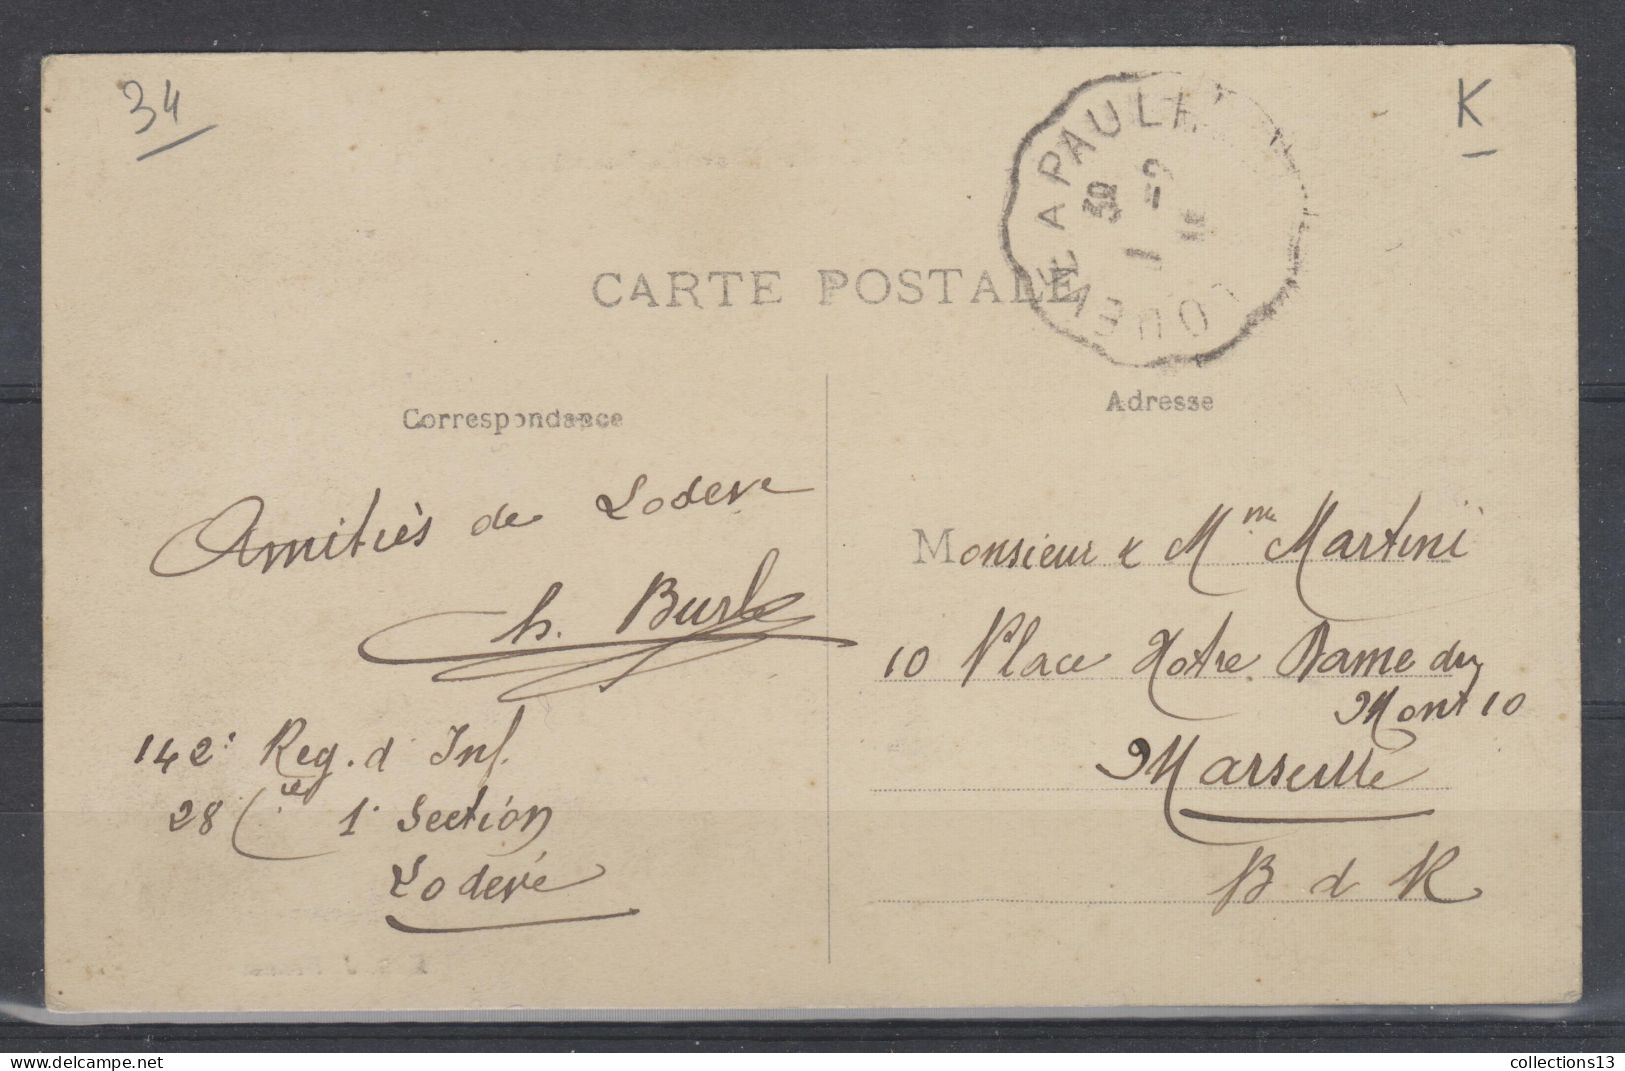 34
K
LODEVE A PAULH
CARTE POSTALE
Correspondance
Adresse
Amitiés de Lodeve
h. Burle
142e Reg. d Inf.
28 Cie 1e Section
Lodevé
Monsieur & Mme Martini
10 Place Notre Dame du
Mont 10
Marseille
B d R
collections13